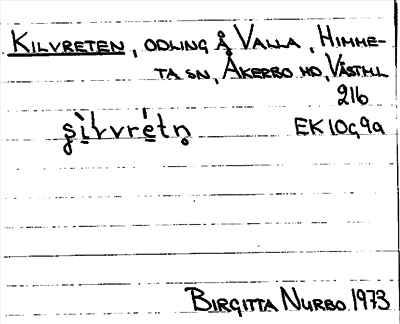 KILVRETEN, ODLING Å VALLA, HIMME-
TA SN, ÅKERBO HD, VÄSTML.
216
EK 10G9a
BIRGITTA NURBO 1973